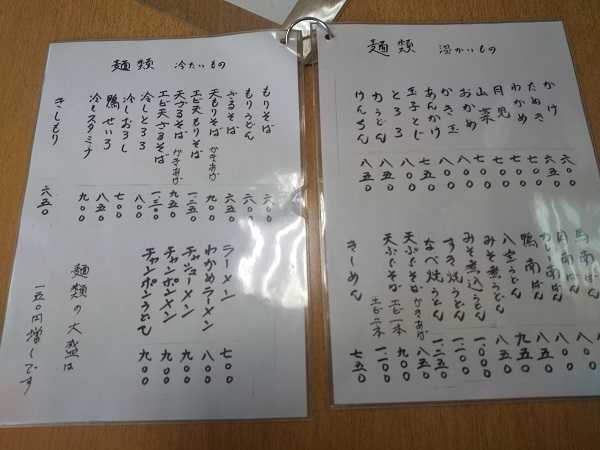 麺類 温かいもの
かけ 六〇〇
たぬき 六五〇
わかめ
月見
山菜
おかめ
かき玉
あんかけ
玉子とじ
とろろ
力うどん 八五〇
けんちん 八五〇
南ばん
肉南ばん
南ばん
鴨南ばん
八宝うどん
みそ煮うどん
みそ煮込うどん
すき焼うどん
なべ焼うどん 一二五〇
天ぷらそば かきあげ 八五〇
天ぷらそば エビ一本 九〇〇
エビ二本 一二〇〇
きしめん 七五〇
麺類 冷たいもの
もりそば 六〇〇
もりうどん 六〇〇
ざるそば 六五〇
天もりそば かきあげ 九〇〇
エビ天もりそば 一二五〇
天ざるそば かきあげ 九五〇
エビ天ざるそば 一三〇〇
冷しとろろ 八〇〇
冷しおろし 七〇〇
鴨せいろ 八五〇
冷しスタミナ 九〇〇
きしもり 六五〇
ラーメン 七〇〇
わかめラーメン 八〇〇
チャーシューメン 九〇〇
チャンポンメン 九〇〇
チャンポンうどん 九〇〇
麺類の大盛は
一五〇円増しです